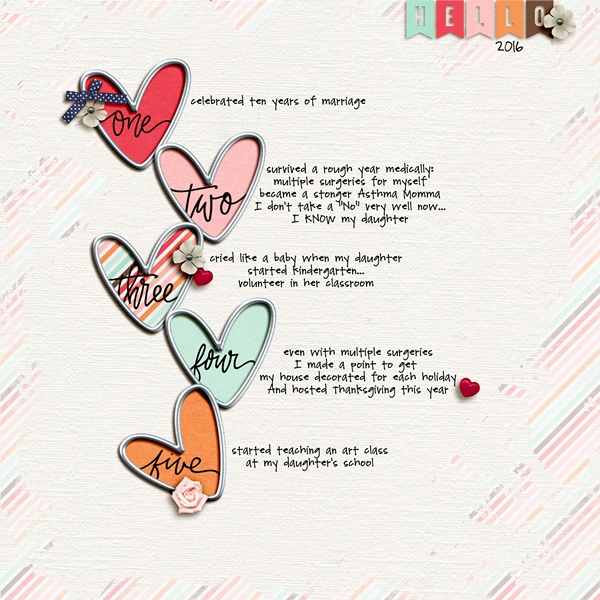 HELLO
2016
one
celebrated ten years of marriage
two
survived a rough year medically:
multiple surgeries for myself
became a stonger Asthma Momma
I don't take a "No" very well now...
I KNOW my daughter
three
cried like a baby when my daughter
started kindergarten...
volunteer in her classroom
four
even with multiple surgeries
I made a point to get
my house decorated for each holiday
And hosted Thanksgiving this year
five
started teaching an art class
at my daughter's school